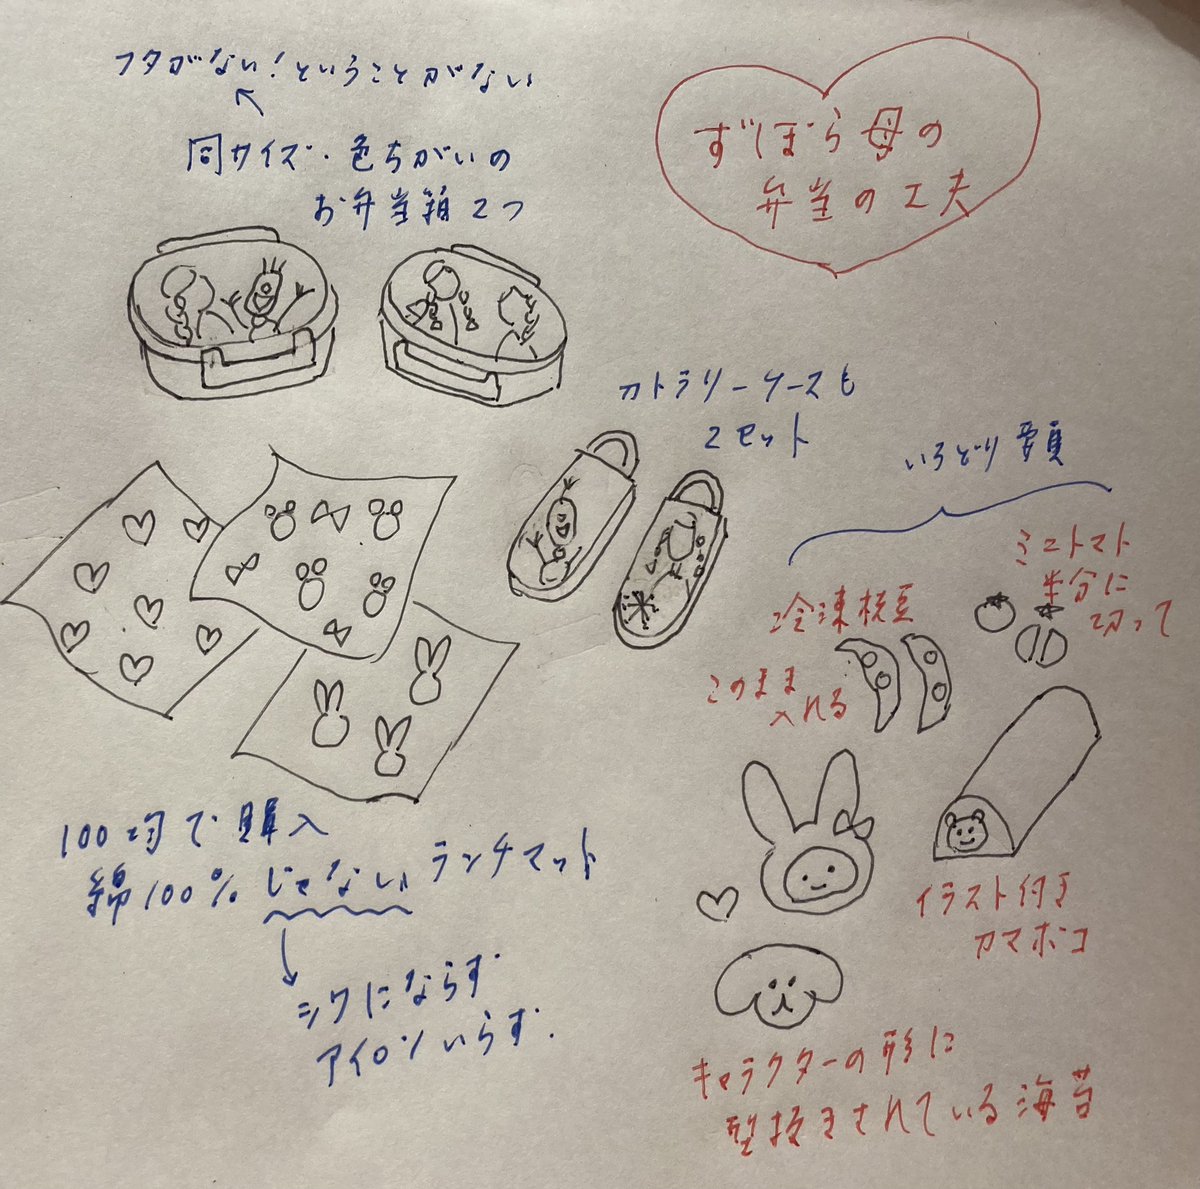 ずぼら母の
弁当の工夫
フタがない!ということがない
同サイズ・色ちがいの
お弁当箱2つ
カトラリーケースも
2セット
いろどり要員
ミニトマト
半分に
切って
冷凍枝豆
このまま
入れる
イラスト付き
カマボコ
キャラクターの形に
型抜きされている海苔
100均で購入
綿100%じゃないランチマット
シワにならず
アイロンいらず.